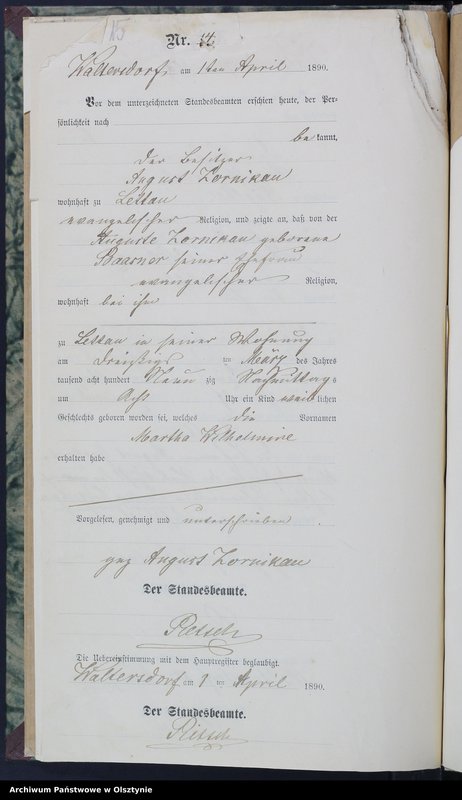 15
Nr. 54.
Waltersdorf, am 1ten April 1890.
Vor dem unterzeichneten Standesbeamten erschien heute, der Per-
sönlichkeit nach
be kannt,
der Besitzer
August Zornikau
wohnhaft zu Lettau
evangelischer Religion, und zeigte an, daß von der
Auguste Zornikau geborene
Baasner seiner Ehefrau
evangelischer Religion,
wohnhaft bei ihm
zu Lettau in seiner Wohnung
am dreizigs ten März des Jahres
tausend acht hundert Neun zig Nachmittags
um Acht Uhr ein Kind weib lichen
Geschlechts geboren worden sei, welches die Vornamen
Martha Wilhelmine
erhalten habe
Vorgelesen, genehmigt und unterschrieben
gez August Zornikau
Der Standesbeamte.
Die Uebereinstimmung mit dem Hauptregister beglaubigt.
Waltersdorf am 1 ten April 1890.
Der Standesbeamte.
Archiwum Państwowe w Olsztynie